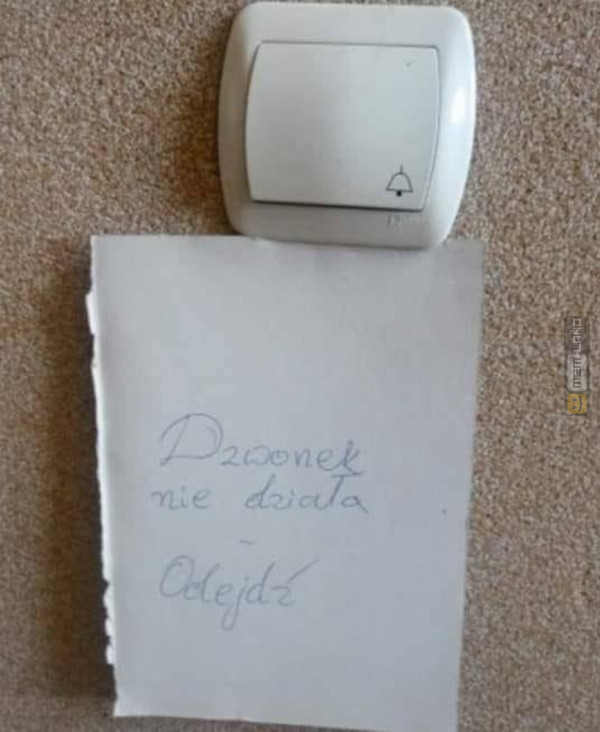 Dzwonek
nie działa
-
Odejdź
MEMLAND